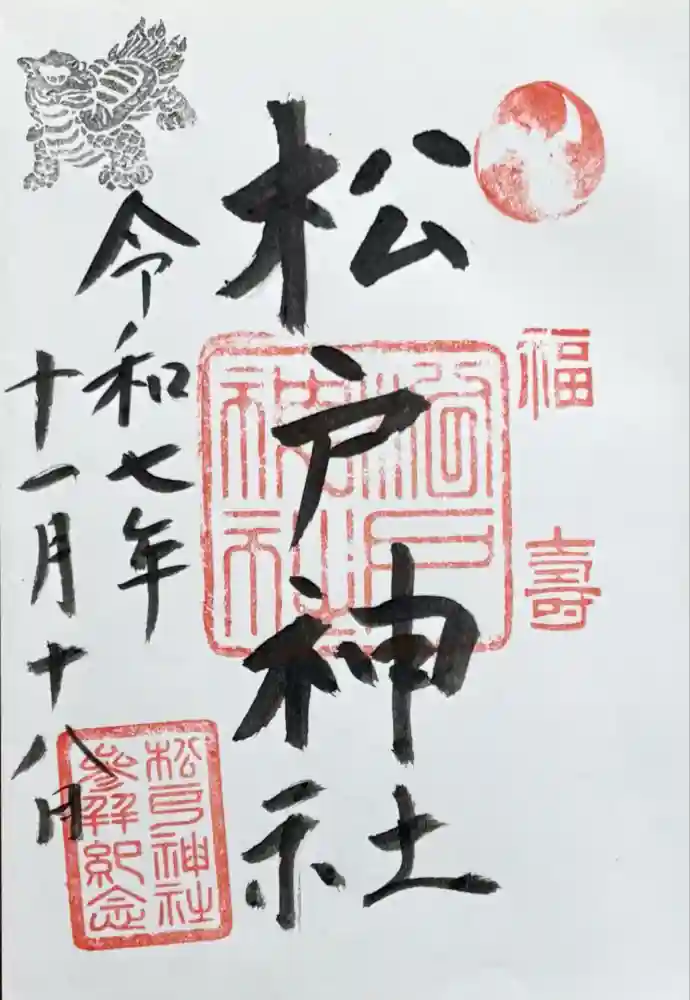 福壽
松戸神社
松戸神社
令和七年
十一月十八日
松戸神社
参拝紀念